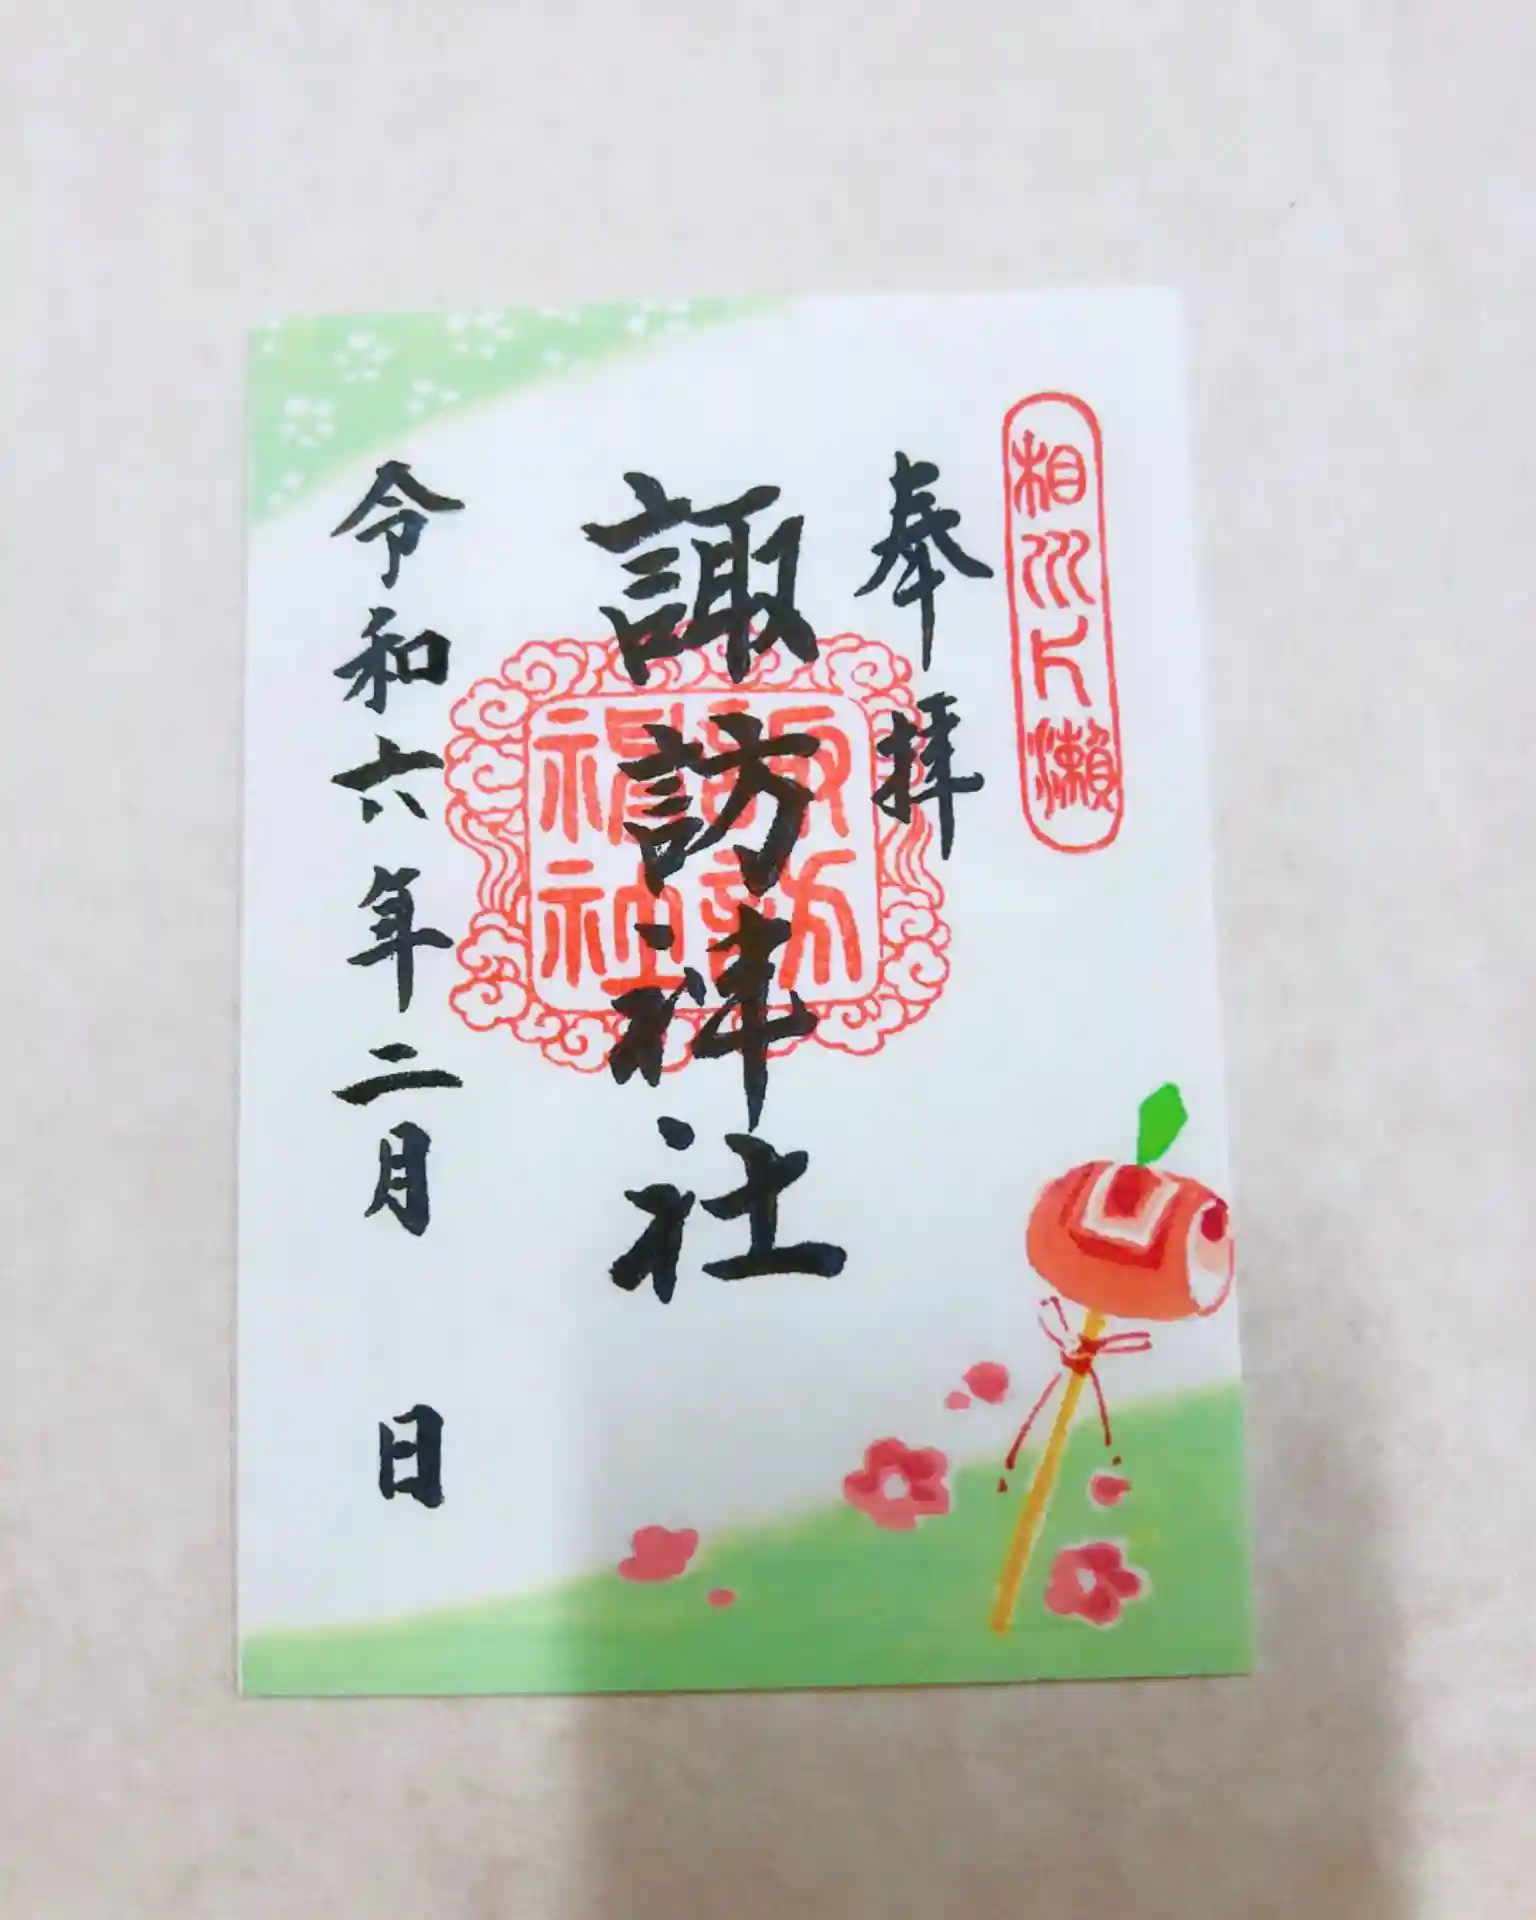 相州片瀬
奉拝
諏訪神社
諏訪神社
令和六年二月 日